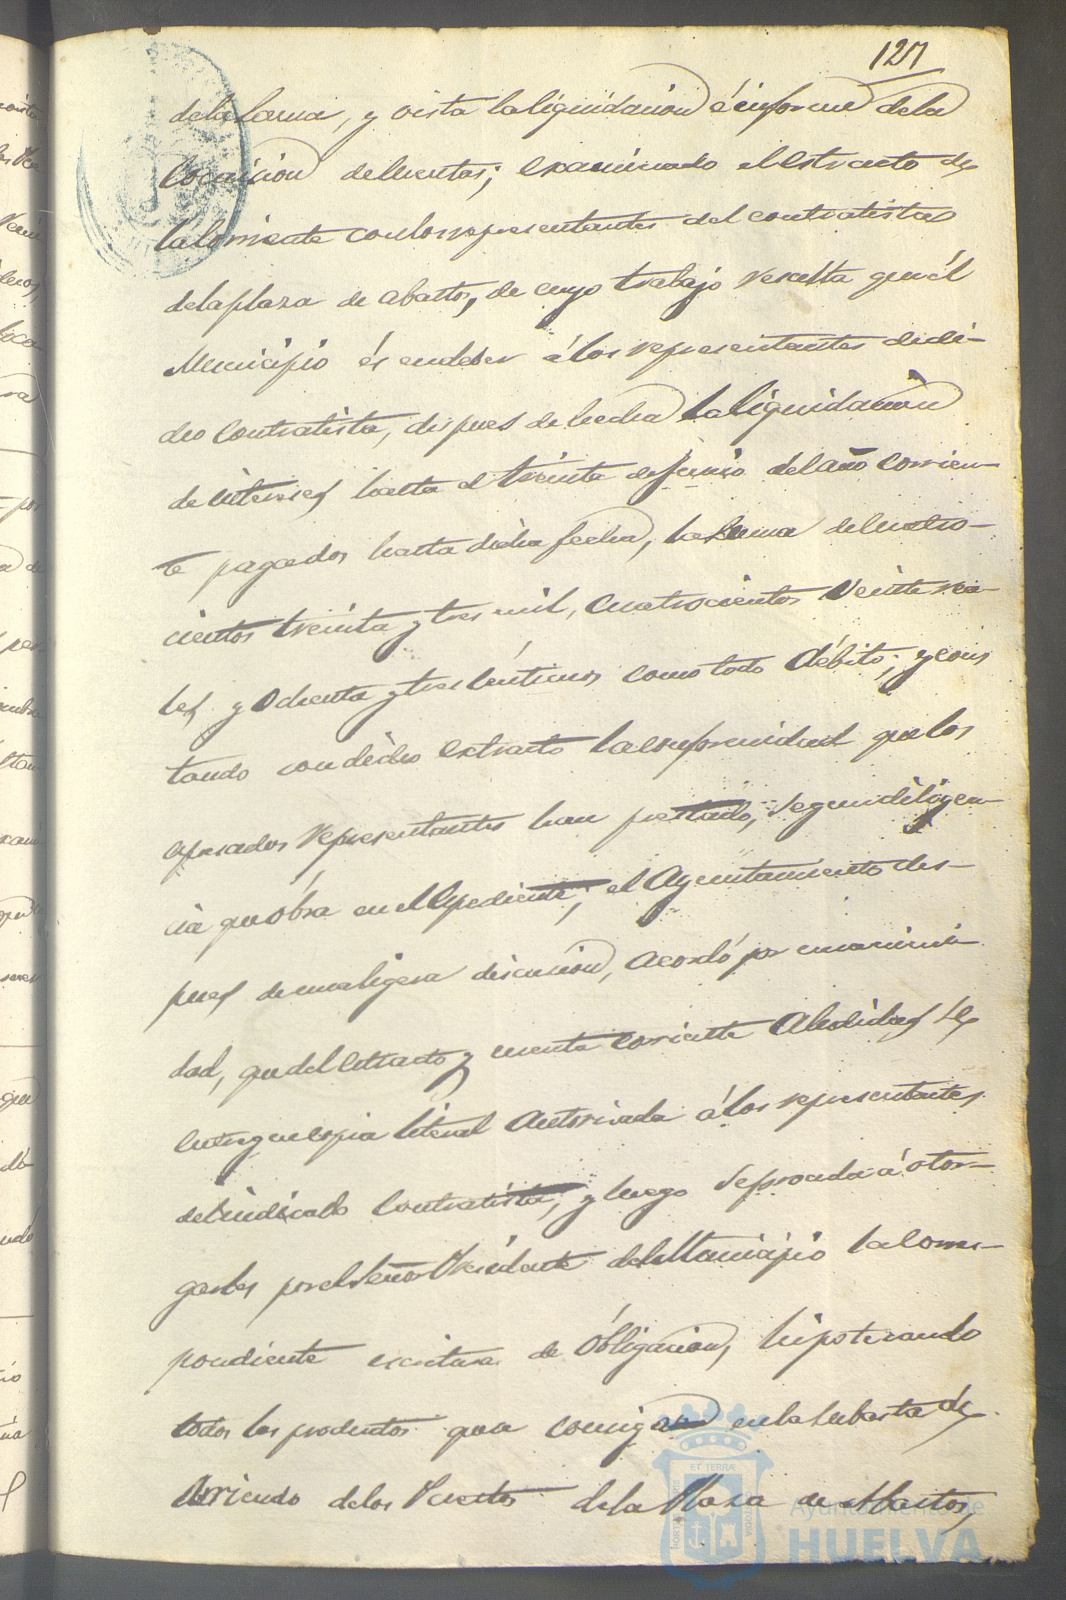 127
de la forma, y vista la liquidacion é informe de la
Comicion de Cuentas; examinado el estracto de
la Corriente con los representantes del contratista
de la plaza de abastos, de cuyo trabajo resulta que él
Municipio és en deber á los representantes de di-
cho Contratista, despues de hecha la liquidacion
de intereses hasta el treinta de Junio del año corrien-
te pagados hasta dicha fecha, la suma de Cuatro-
cientos treinta y tres mil, cuatrocientos veinte rea-
les y Ochenta y tres Céntimos como todo Débito; y cons
tando con dicho extracto la conformidad que los
espresados representantes han prestado, segun diligen-
cia que óbra en el Espediente; el Ayuntamiento des-
pues de una ligera discucion, acordó por unanimi-
dad, que del Extracto y cuenta corriente Aludidas se
entregue copia literal Autorizada á los representantes
del indicado Contratista, y luego se proceda á otor-
garles por el Señor Presidente del Municipio la Corres-
pondiente escritura de Obligacion, hipotecando
todos los productos que se consigan en la Subasta de
Arriendo de los Puestos de la Plaza de Abastos,
ET TERRÆ
Ayuntamiento de
HUELVA